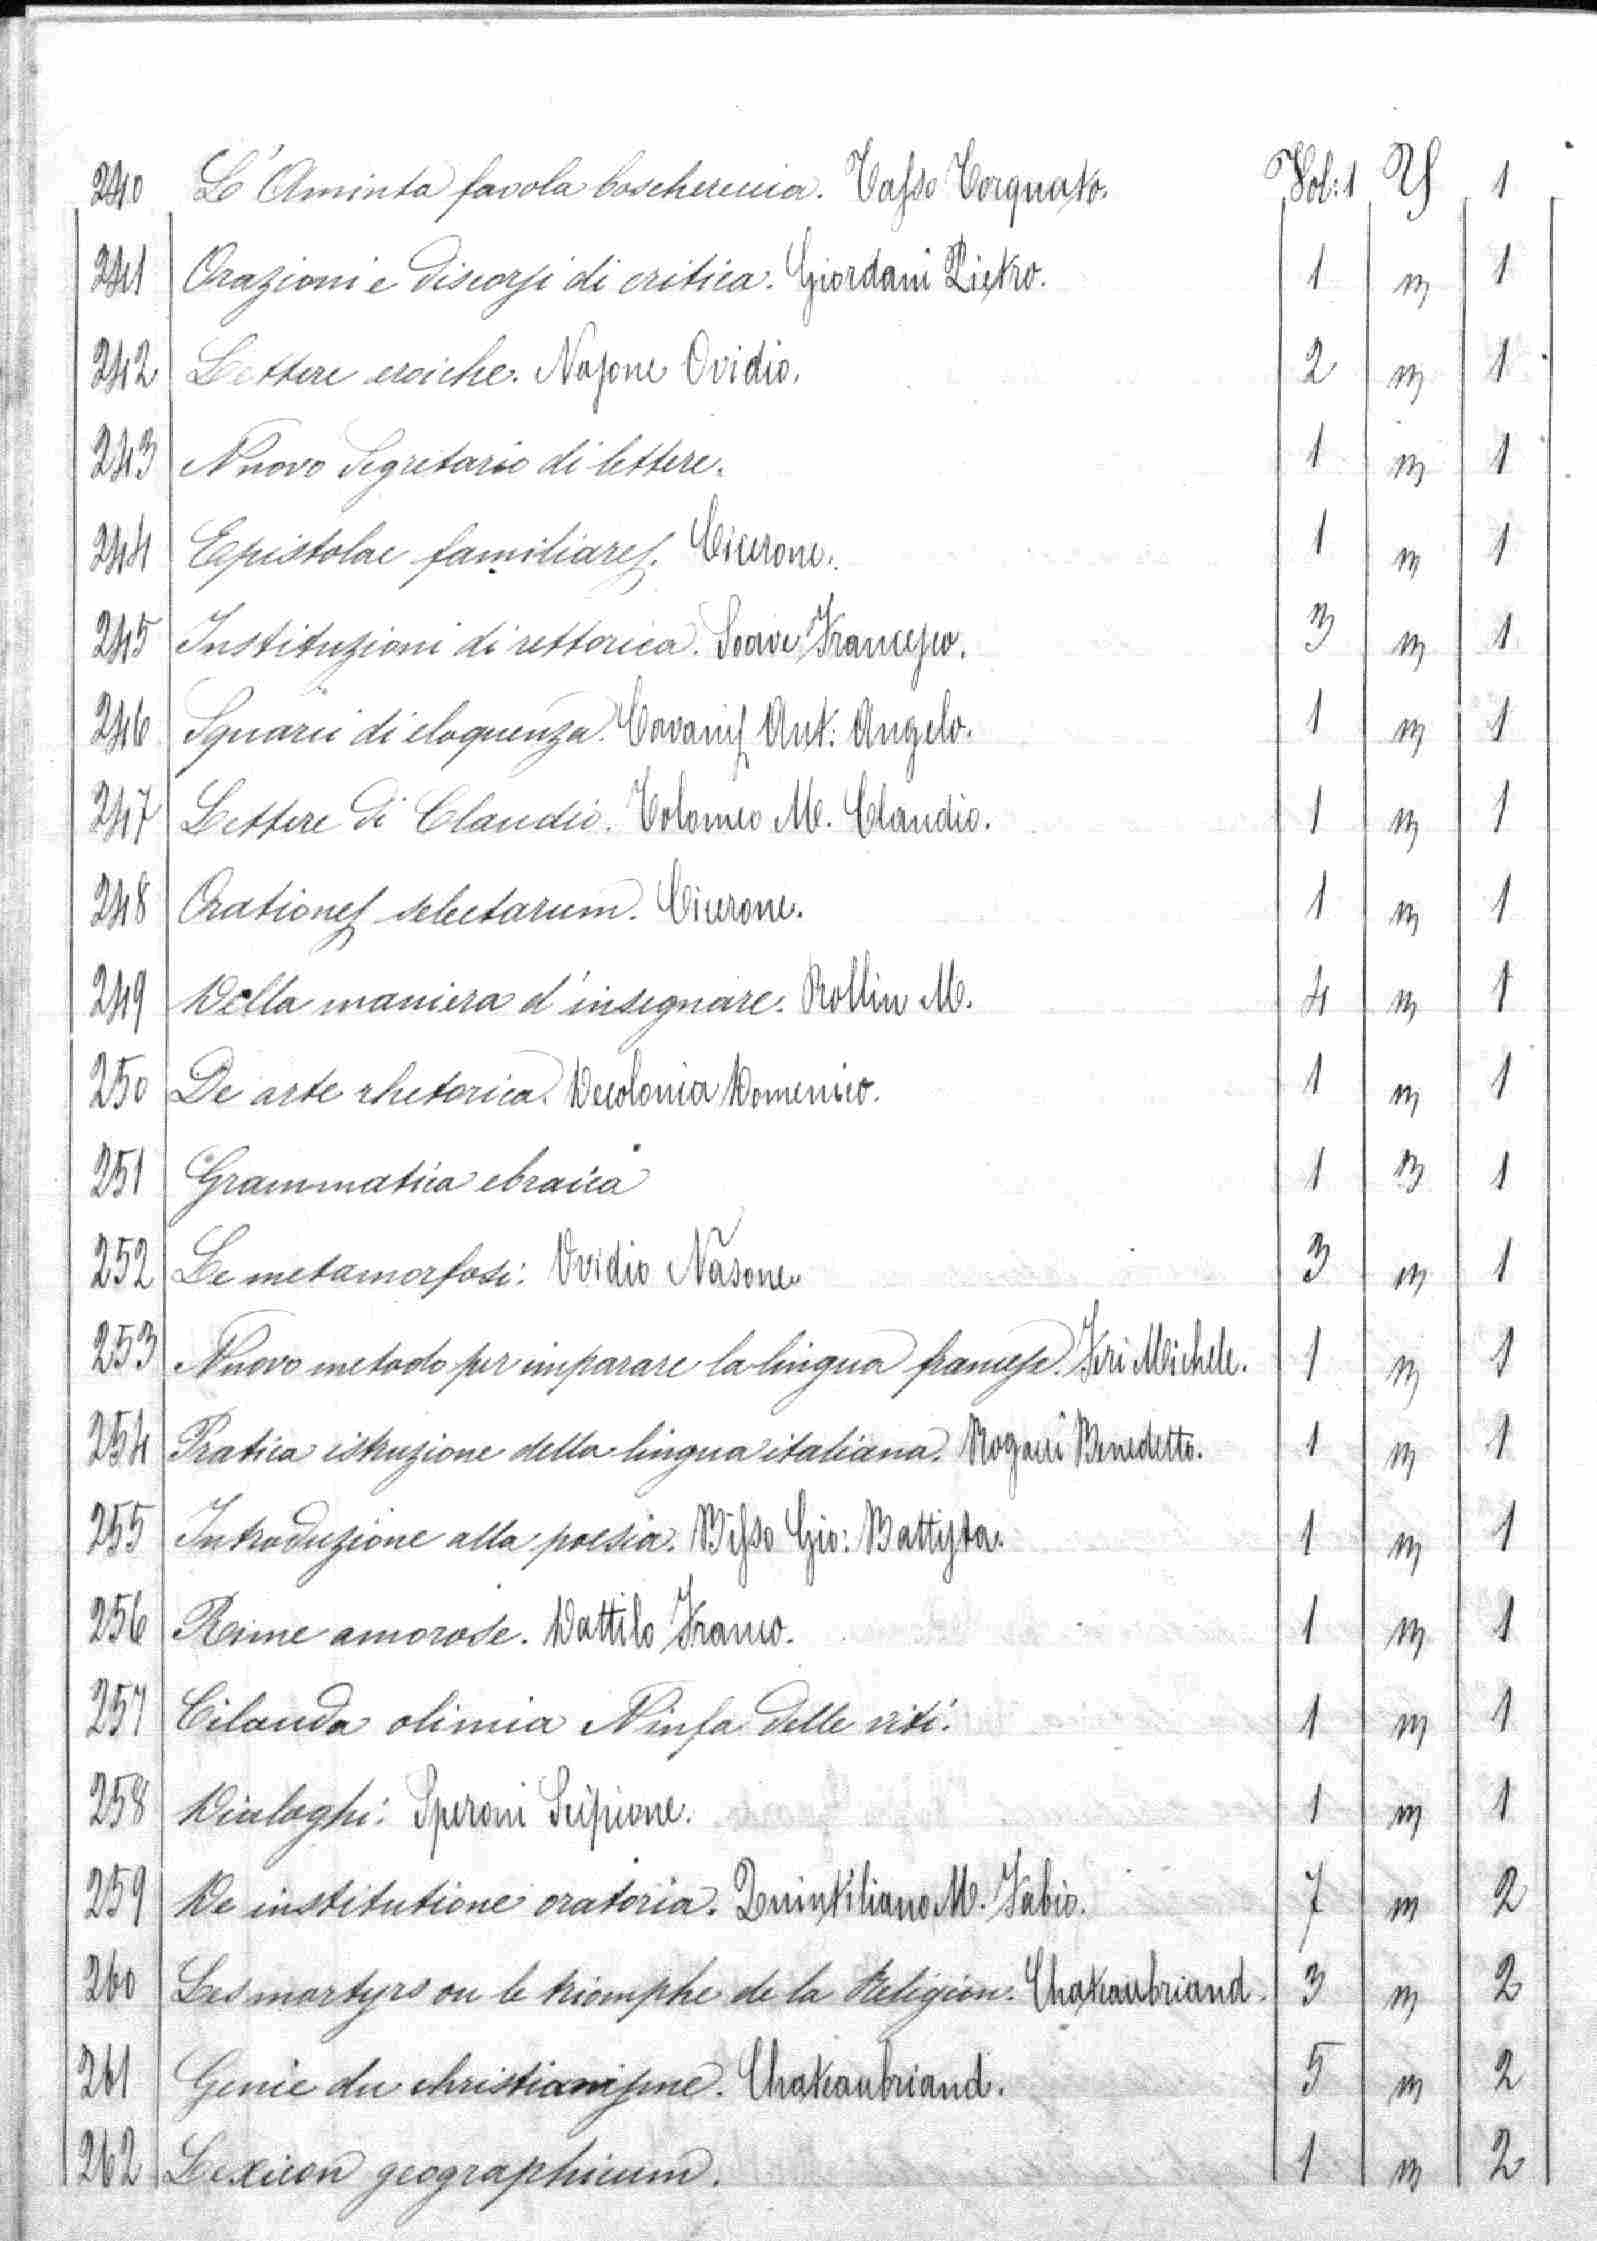 240 L'Aminta favola boschereccia. Tasso Torquato. Vol: 1 Y 1
241 Orazioni e discorsi di critica. Giordani Pietro. 1 m 1
242 Lettere eroiche. Nasone Ovidio. 2 m 1
243 Nuovo Segretario di lettere. 1 m 1
244 Epistolae familiares. Cicerone. 1 m 1
245 Instituzioni di rettorica. Soave Francesco. 3 m 1
246 Squarci di eloquenza. Cavanis Ant: Angelo. 1 m 1
247 Lettere di Claudio. Tolomeo M. Claudio. 1 m 1
248 Orationes selectarum. Cicerone. 1 m 1
249 Della maniera d'insegnare. Rollin M. 4 m 1
250 De arte rhetorica. Decolonia Domenico. 1 m 1
251 Grammatica ebraica 1 m 1
252 Le metamorfosi: Ovidio Nasone 3 m 1
253 Nuovo metodo per imparare la lingua francese. Feri Michele. 1 m 1
254 Pratica istruzione della lingua italiana. Rogacci Benedetto. 1 m 1
255 Introduzione alla poesia. Bisso Gio: Battista. 1 m 1
256 Rime amorose. Dattilo Franco. 1 m 1
257 Cilanda olimia Ninfa delle viti. 1 m 1
258 Dialoghi: Speroni Scipione. 1 m 1
259 De institutione oratoria. Quintiliano M. Fabio. 7 m 2
260 Les martyrs ou le triomphe de la Religion. Chateaubriand. 3 m 2
261 Genie du christianisme. Chateaubriand. 5 m 2
262 Lexicon geographicum. 1 m 2